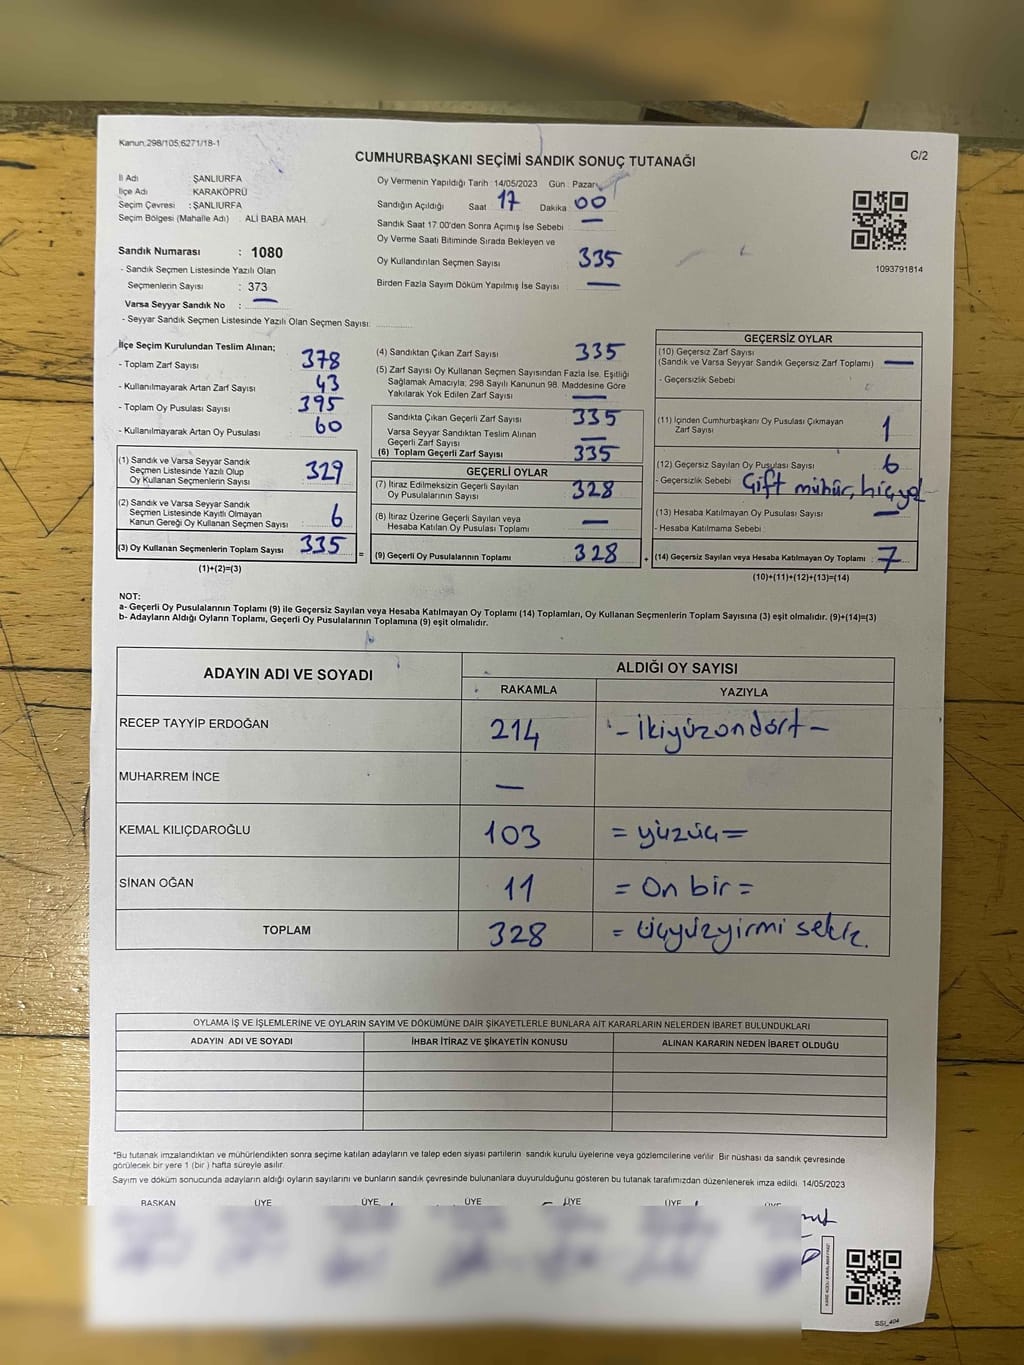 Kanun:298/105;6271/18-1
C/2
CUMHURBAŞKANI SEÇİMİ SANDIK SONUÇ TUTANAĞI
İl Adı ŞANLIURFA
İlçe Adı KARAKÖPRÜ
Seçim Çevresi : ŞANLIURFA
Seçim Bölgesi (Mahalle Adı) : ALİ BABA MAH.
Sandık Numarası : 1080
- Sandık Seçmen Listesinde Yazılı Olan
Seçmenlerin Sayısı : 373
Varsa Seyyar Sandık No : —
- Seyyar Sandık Seçmen Listesinde Yazılı Olan Seçmen Sayısı:
Oy Vermenin Yapıldığı Tarih : 14/05/2023 Gün : Pazar
Sandığın Açıldığı Saat 17 Dakika 00
Sandık Saat 17 00'den Sonra Açımış İse Sebebi : —
Oy Verme Saati Bitiminde Sırada Bekleyen ve
Oy Kullandırılan Seçmen Sayısı 335
Birden Fazla Sayım Döküm Yapılmış İse Sayısı : —
1093791814
İlçe Seçim Kurulundan Teslim Alınan;
- Toplam Zarf Sayısı : 378
- Kullanılmayarak Artan Zarf Sayısı : 43
- Toplam Oy Pusulası Sayısı : 395
- Kullanılmayarak Artan Oy Pusulası : 60
(1) Sandık ve Varsa Seyyar Sandık
Seçmen Listesinde Yazılı Olup
Oy Kullanan Seçmenlerin Sayısı : 329
(2) Sandık ve Varsa Seyyar Sandık
Seçmen Listesinde Kayıtlı Olmayan
Kanun Gereği Oy Kullanan Seçmen Sayısı : 6
(3) Oy Kullanan Seçmenlerin Toplam Sayısı : 335
(1)+(2)=(3)
=
(4) Sandıktan Çıkan Zarf Sayısı : 335
(5) Zarf Sayısı Oy Kullanan Seçmen Sayısından Fazla İse, Eşitliği
Sağlamak Amacıyla; 298 Sayılı Kanunun 98. Maddesine Göre
Yakılarak Yok Edilen Zarf Sayısı : —
Sandıkta Çıkan Geçerli Zarf Sayısı : 335
Varsa Seyyar Sandıktan Teslim Alınan
Geçerli Zarf Sayısı : —
(6) Toplam Geçerli Zarf Sayısı : 335
GEÇERLİ OYLAR
(7) İtiraz Edilmeksizin Geçerli Sayılan
Oy Pusulalarının Sayısı : 328
(8) İtiraz Üzerine Geçerli Sayılan veya
Hesaba Katılan Oy Pusulası Toplamı : —
(9) Geçerli Oy Pusulalarının Toplamı : 328
+
GEÇERSİZ OYLAR
(10) Geçersiz Zarf Sayısı
(Sandık ve Varsa Seyyar Sandık Geçersiz Zarf Toplamı) : —
- Geçersizlik Sebebi
(11) İçinden Cumhurbaşkanı Oy Pusulası Çıkmayan
Zarf Sayısı : 1
(12) Geçersiz Sayılan Oy Pusulası Sayısı : 6
- Geçersizlik Sebebi : Çift mühür,
(13) Hesaba Katılmayan Oy Pusulası Sayısı : —
- Hesaba Katılmama Sebebi :
(14) Geçersiz Sayılan veya Hesaba Katılmayan Oy Toplamı : 7
(10)+(11)+(12)+(13)=(14)
NOT:
a- Geçerli Oy Pusulalarının Toplamı (9) ile Geçersiz Sayılan veya Hesaba Katılmayan Oy Toplamı (14) Toplamları, Oy Kullanan Seçmenlerin Toplam Sayısına (3) eşit olmalıdır. (9)+(14)=(3)
b- Adayların Aldığı Oyların Toplamı, Geçerli Oy Pusulalarının Toplamına (9) eşit olmalıdır.
ADAYIN ADI VE SOYADI ALDIĞI OY SAYISI
RAKAMLA YAZIYLA
RECEP TAYYİP ERDOĞAN 214 - İkiyüzondört -
MUHARREM İNCE —
KEMAL KILIÇDAROĞLU 103 = yüzüç =
SİNAN OĞAN 11 = On bir =
TOPLAM 328 = üçyüzyirmi sekiz.
OYLAMA İŞ VE İŞLEMLERİNE VE OYLARIN SAYIM VE DÖKÜMÜNE DAİR ŞİKAYETLERLE BUNLARA AİT KARARLARIN NELERDEN İBARET BULUNDUKLARI
ADAYIN ADI VE SOYADI İHBAR İTİRAZ VE ŞİKAYETİN KONUSU ALINAN KARARIN NEDEN İBARET OLDUĞU
*Bu tutanak imzalandıktan ve mühürlendikten sonra seçime katılan adayların ve talep eden siyasi partilerin sandık kurulu üyelerine veya gözlemcilerine verilir. Bir nüshası da sandık çevresinde
görülecek bir yere 1 (bir ) hafta süreyle asılır.
Sayım ve döküm sonucunda adayların aldığı oyların sayılarını ve bunların sandık çevresinde bulunanlara duyurulduğunu gösteren bu tutanak tarafımızdan düzenlenerek imza edildi. 14/05/2023
BAŞKAN ÜYE ÜYE ÜYE ÜYE ÜYE ÜYE